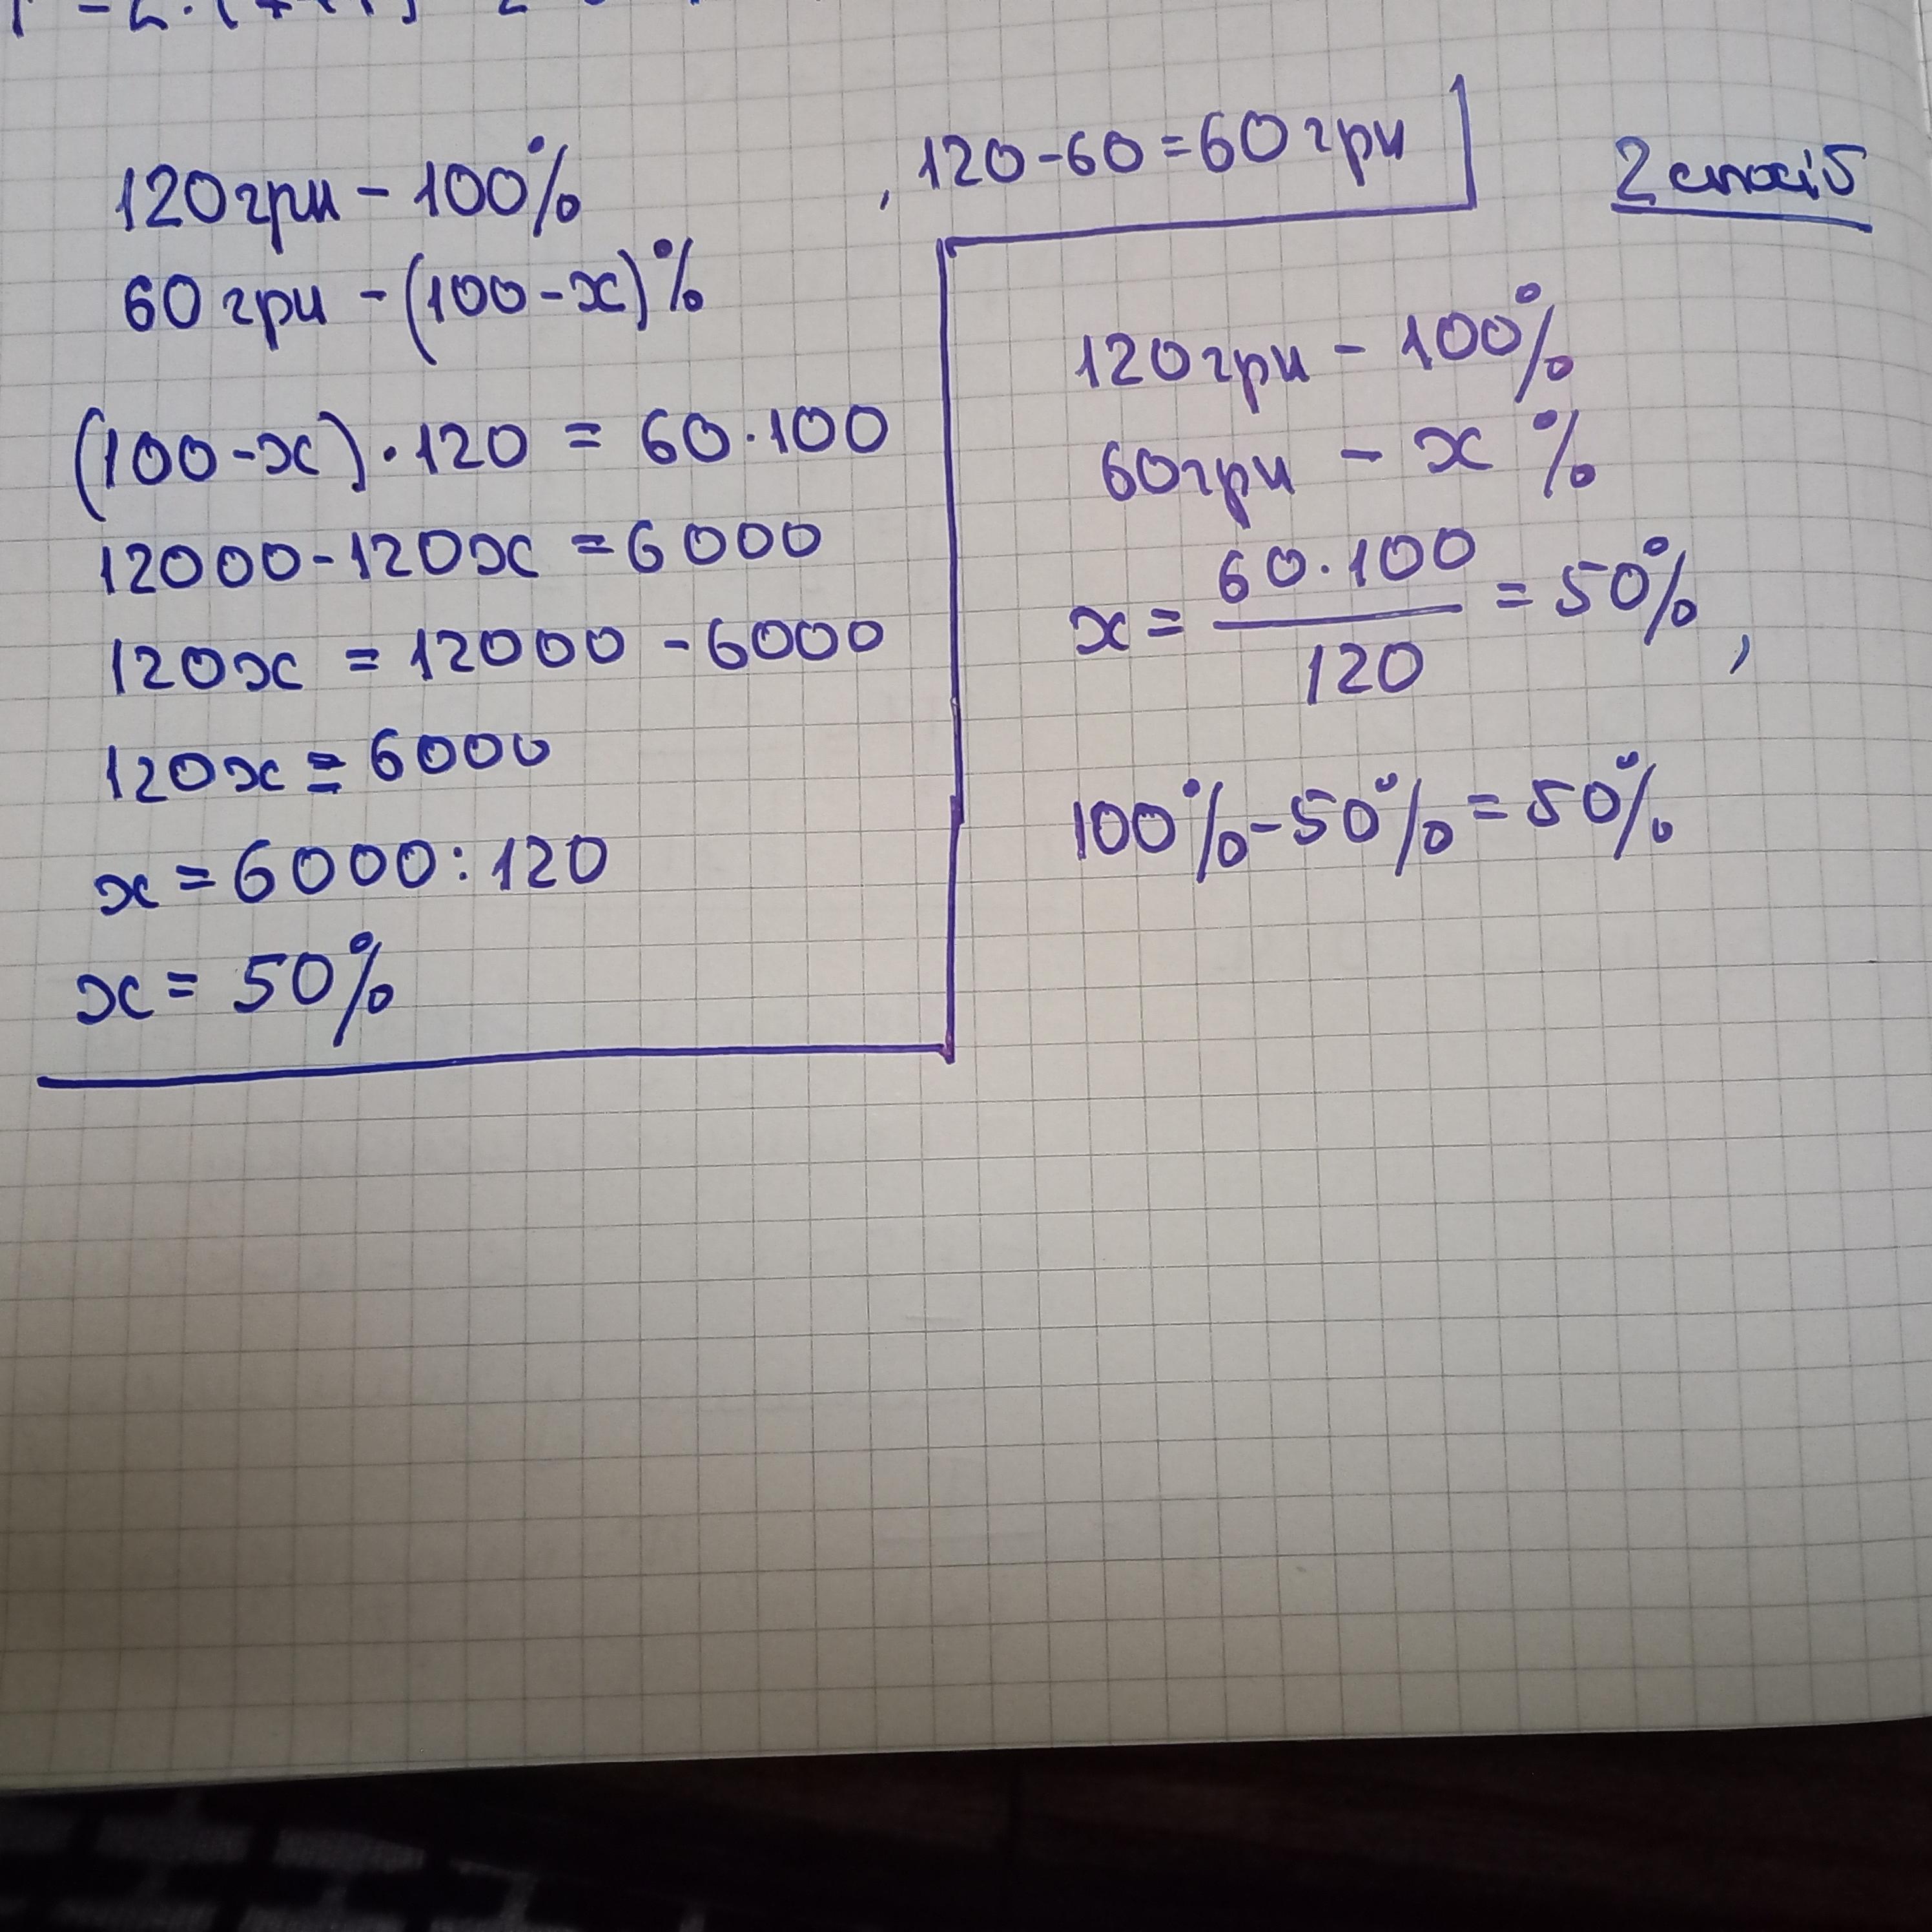 120 грн - 100%
60 грн - (100 - x)%
(100 - x) · 120 = 60 · 100
12000 - 120x = 6000
120x = 12000 - 6000
120x = 6000
x = 6000 : 120
x = 50%
, 120 - 60 = 60 грн
2 спосіб
120 грн - 100%
60 грн - x %
x = 60 · 100 / 120 = 50% ,
100% - 50% = 50%